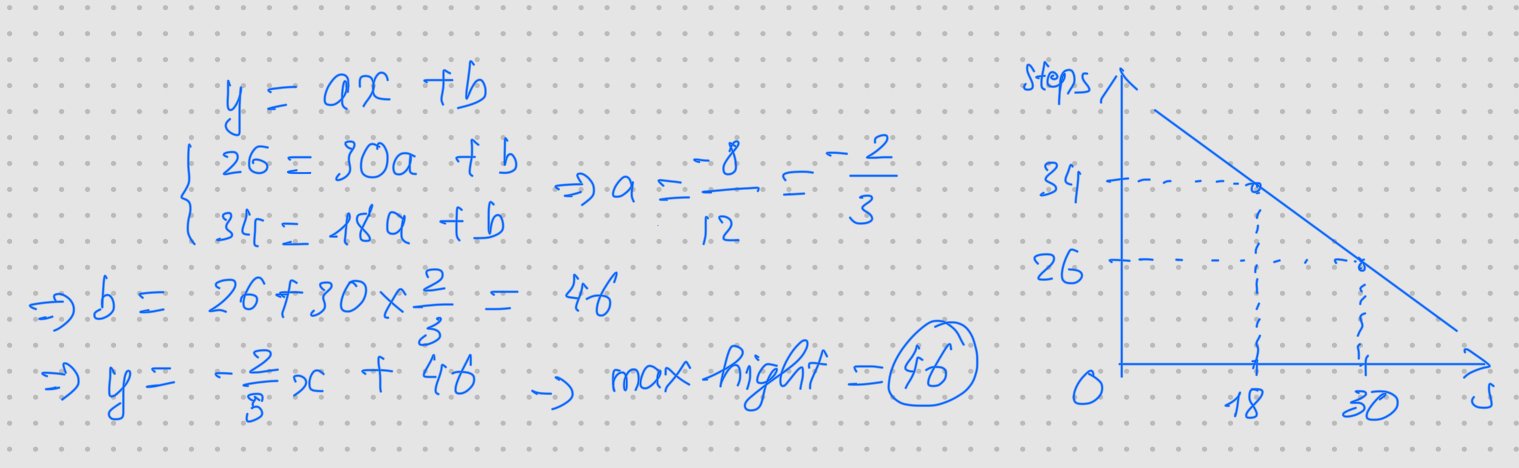 y = ax + b
26 = 30a + b
34 = 18a + b
⇒ a = -8/12 = -2/3
⇒ b = 26 + 30 × 2/3 = 46
⇒ y = -2/5 x + 46 → max hight = 46
steps
34
26
0
18
30
s